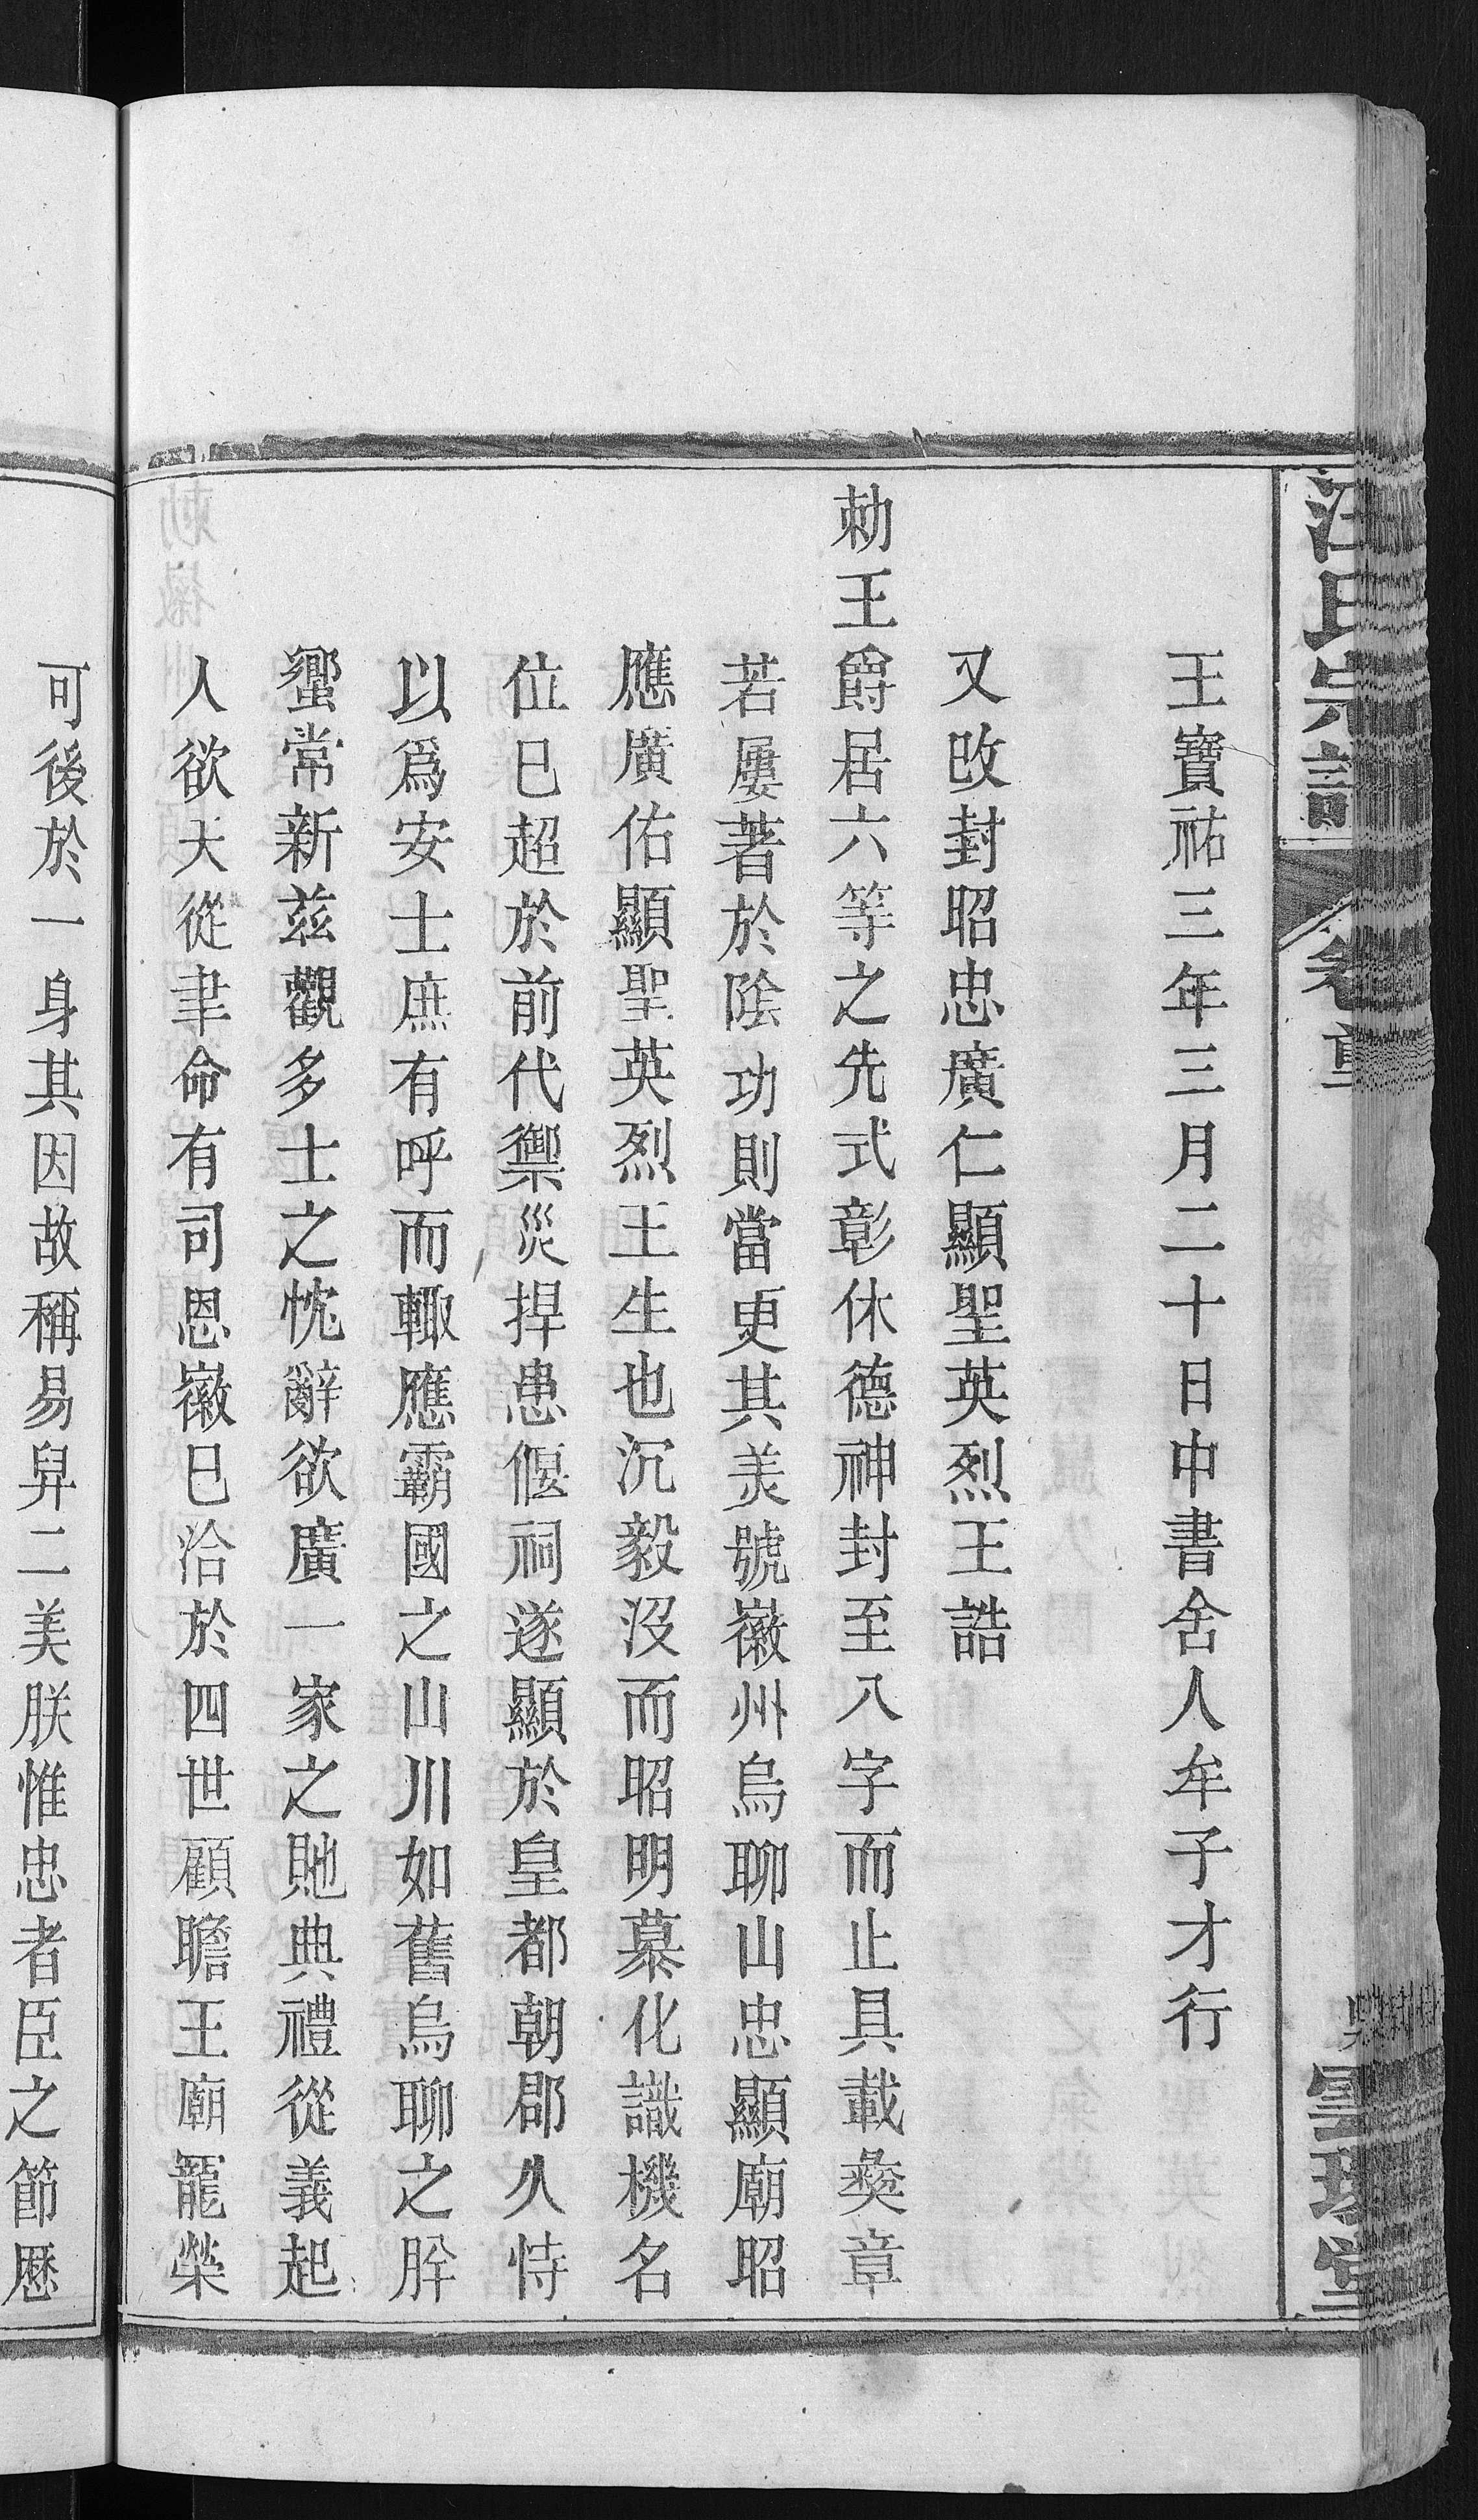 汪氏宗譜
卷首
王寶祐三年三月二十日中書舍人牟子才行
又改封昭忠廣仁顯聖英烈王誥
勅王爵居六等之先式彰休德神封至八字而止具載彜章
若屢著於陰功則當更其美號徽州烏聊山忠顯廟昭
應廣佑顯聖英烈王生也沉毅沒而昭明慕化識機名
位已超於前代禦災捍患偃祠遂顯於皇都朝郡久恃
以爲安士庶有呼而輙應霸國之山川如舊烏聊之肸
蠁常新茲觀多士之忱辭欲廣一家之貤典禮從義起
人欲大從聿命有司恩徽已洽於四世顧瞻王廟寵榮
可後於一身其因故稱易舁二美朕惟忠者臣之節厯